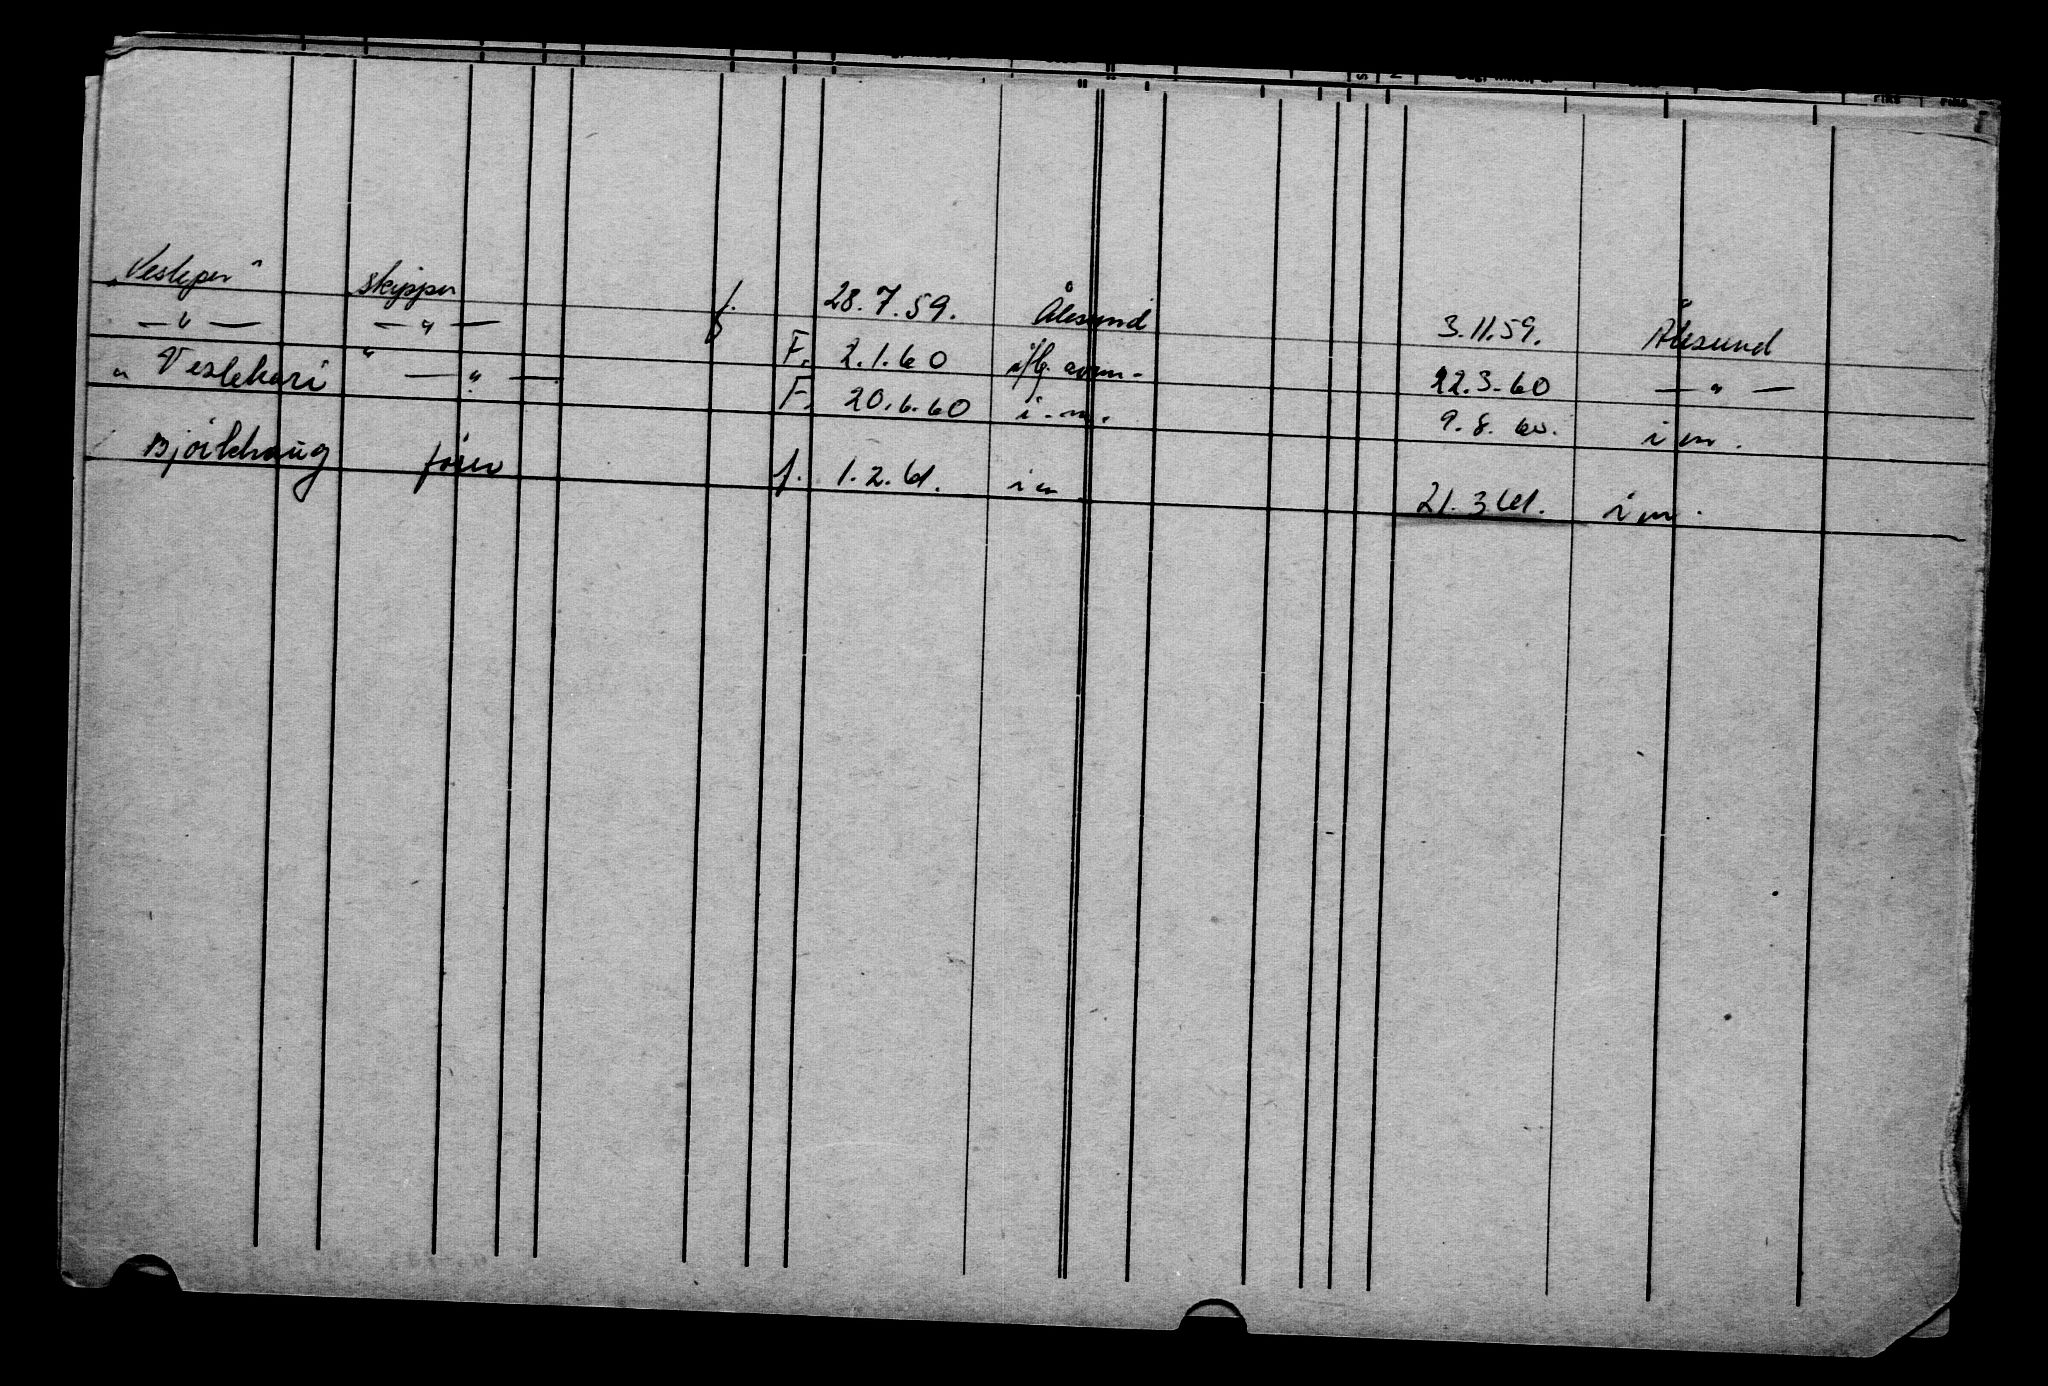 "Vesleper" skipper f. 28.7.59. Ålesund 3.11.59. Ålesund
—"— —"— F. 2.1.60 22.3.60 —"—
"Veslekari" —"— F. 20.6.60 i.m. 9.8.60. i m.
Bjørkhaug fører f. 1.2.61. i m 21.3.61. i m.